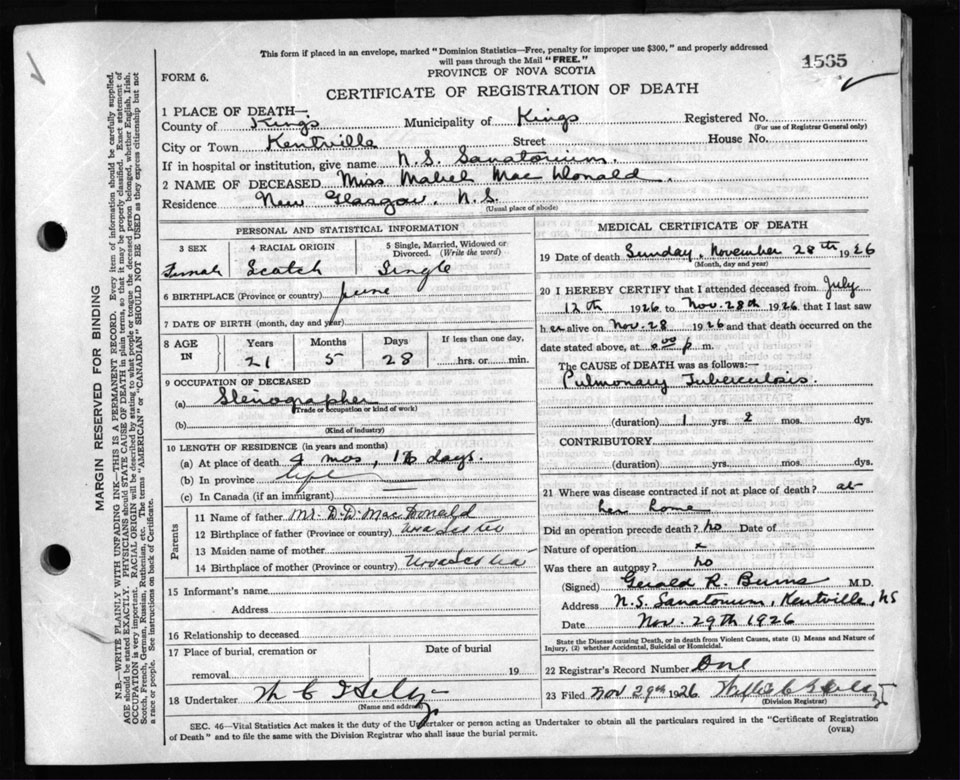 This form if placed in an envelope, marked "Dominion Statistics—Free, penalty for improper use $300," and properly addressed
will pass through the Mail "FREE."
1565
FORM 6.
PROVINCE OF NOVA SCOTIA
CERTIFICATE OF REGISTRATION OF DEATH
MARGIN RESERVED FOR BINDING
N.B.—WRITE PLAINLY WITH UNFADING INK—THIS IS A PERMANENT RECORD. Every item of information should be carefully supplied.
AGE should be stated EXACTLY. PHYSICIANS should STATE CAUSE OF DEATH in plain terms, so that it may be properly classified. Exact statement of
OCCUPATION is very important. RACIAL ORIGIN will be described by stating to what people or tongue the deceased person belonged, whether English, Irish,
Scotch, French, German, Russian, Ruthenian, etc. The terms "AMERICAN" or "CANADIAN" SHOULD NOT BE USED as they express citizenship but not
a race or people. See instructions on back of Certificate.
1 PLACE OF DEATH—
County of Kings Municipality of Kings Registered No.
(For use of Registrar General only)
City or Town Kentville Street House No.
If in hospital or institution, give name N.S. Sanatorium.
2 NAME OF DECEASED Miss Mabel MacDonald.
Residence New Glasgow, N.S.
(Usual place of abode)
PERSONAL AND STATISTICAL INFORMATION
3 SEX 4 RACIAL ORIGIN 5 Single, Married, Widowed or
Divorced. (Write the word)
Female Scotch Single
6 BIRTHPLACE (Province or country) June
7 DATE OF BIRTH (month, day and year)
8 AGE IN Years Months Days If less than one day,
21 5 28 hrs. or min.
9 OCCUPATION OF DECEASED
(a) Stenographer
(Trade or occupation or kind of work)
(b)
(Kind of industry)
10 LENGTH OF RESIDENCE (in years and months)
(a) At place of death 4 mos, 16 days.
(b) In province life
(c) In Canada (if an immigrant)
Parents
11 Name of father Mr. D.D. MacDonald
12 Birthplace of father (Province or country) Nova Scotia
13 Maiden name of mother
14 Birthplace of mother (Province or country) Nova Scotia
15 Informant's name
Address
16 Relationship to deceased
17 Place of burial, cremation or Date of burial
removal 19
18 Undertaker
(Name and address)
MEDICAL CERTIFICATE OF DEATH
19 Date of death Sunday, November 28th 1926
(Month, day and year)
20 I HEREBY CERTIFY that I attended deceased from July
12th 1926 to Nov. 28th 1926 that I last saw
h er alive on Nov. 28 1926 and that death occurred on
date stated above, at p m.
The CAUSE OF DEATH was as follows:—
Pulmonary Tuberculosis.
(duration) 1 yrs. 2 mos. dys.
CONTRIBUTORY
(duration) yrs. mos. dys.
21 Where was disease contracted if not at place of death? at
her home
Did an operation precede death? no Date of
Nature of operation x
Was there an autopsy? no
(Signed) Gerald R. Burns M.D.
Address N.S. Sanatorium, Kentville, NS
Date Nov. 29th 1926
State the Disease causing Death, or in death from Violent Causes, state (1) Means and Nature of
Injury, (2) whether Accidental, Suicidal or Homicidal.
22 Registrar's Record Number One
23 Filed Nov 29th 1926
(Division Registrar)
SEC. 46—Vital Statistics Act makes it the duty of the Undertaker or person acting as Undertaker to obtain all the particulars required in the "Certificate of Registration
of Death" and to file the same with the Division Registrar who shall issue the burial permit.
(OVER)